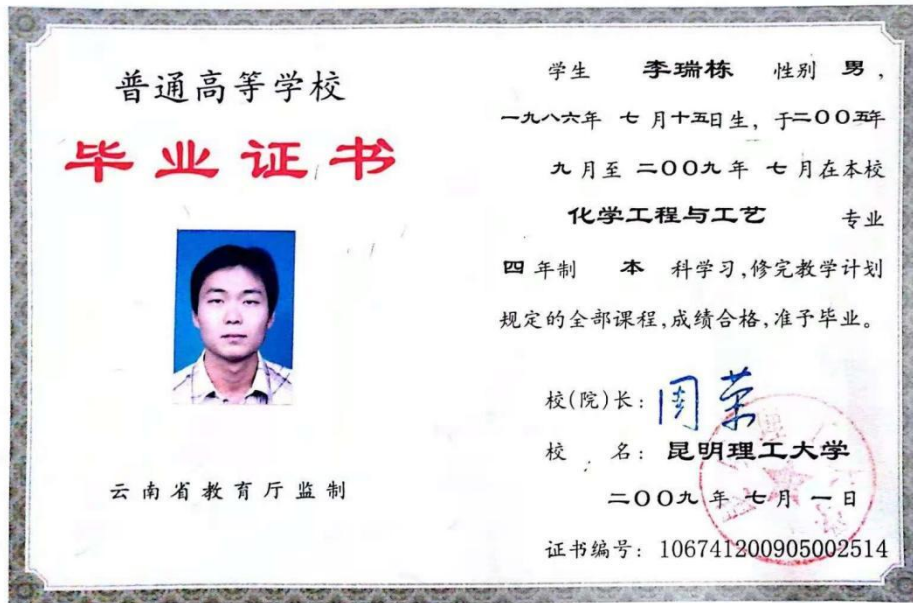 普通高等学校
毕业证书
云南省教育厅监制
学生 李瑞栋 性别 男,
一九八六年 七月十五日生, 于二〇〇五年
九月至 二〇〇九年 七月在本校
化学工程与工艺 专业
四年制 本 科学习,修完教学计划
规定的全部课程,成绩合格,准予毕业。
校(院)长: 周荣
校 名: 昆明理工大学
二〇〇九年 七月 一日
证书编号: 106741200905002514